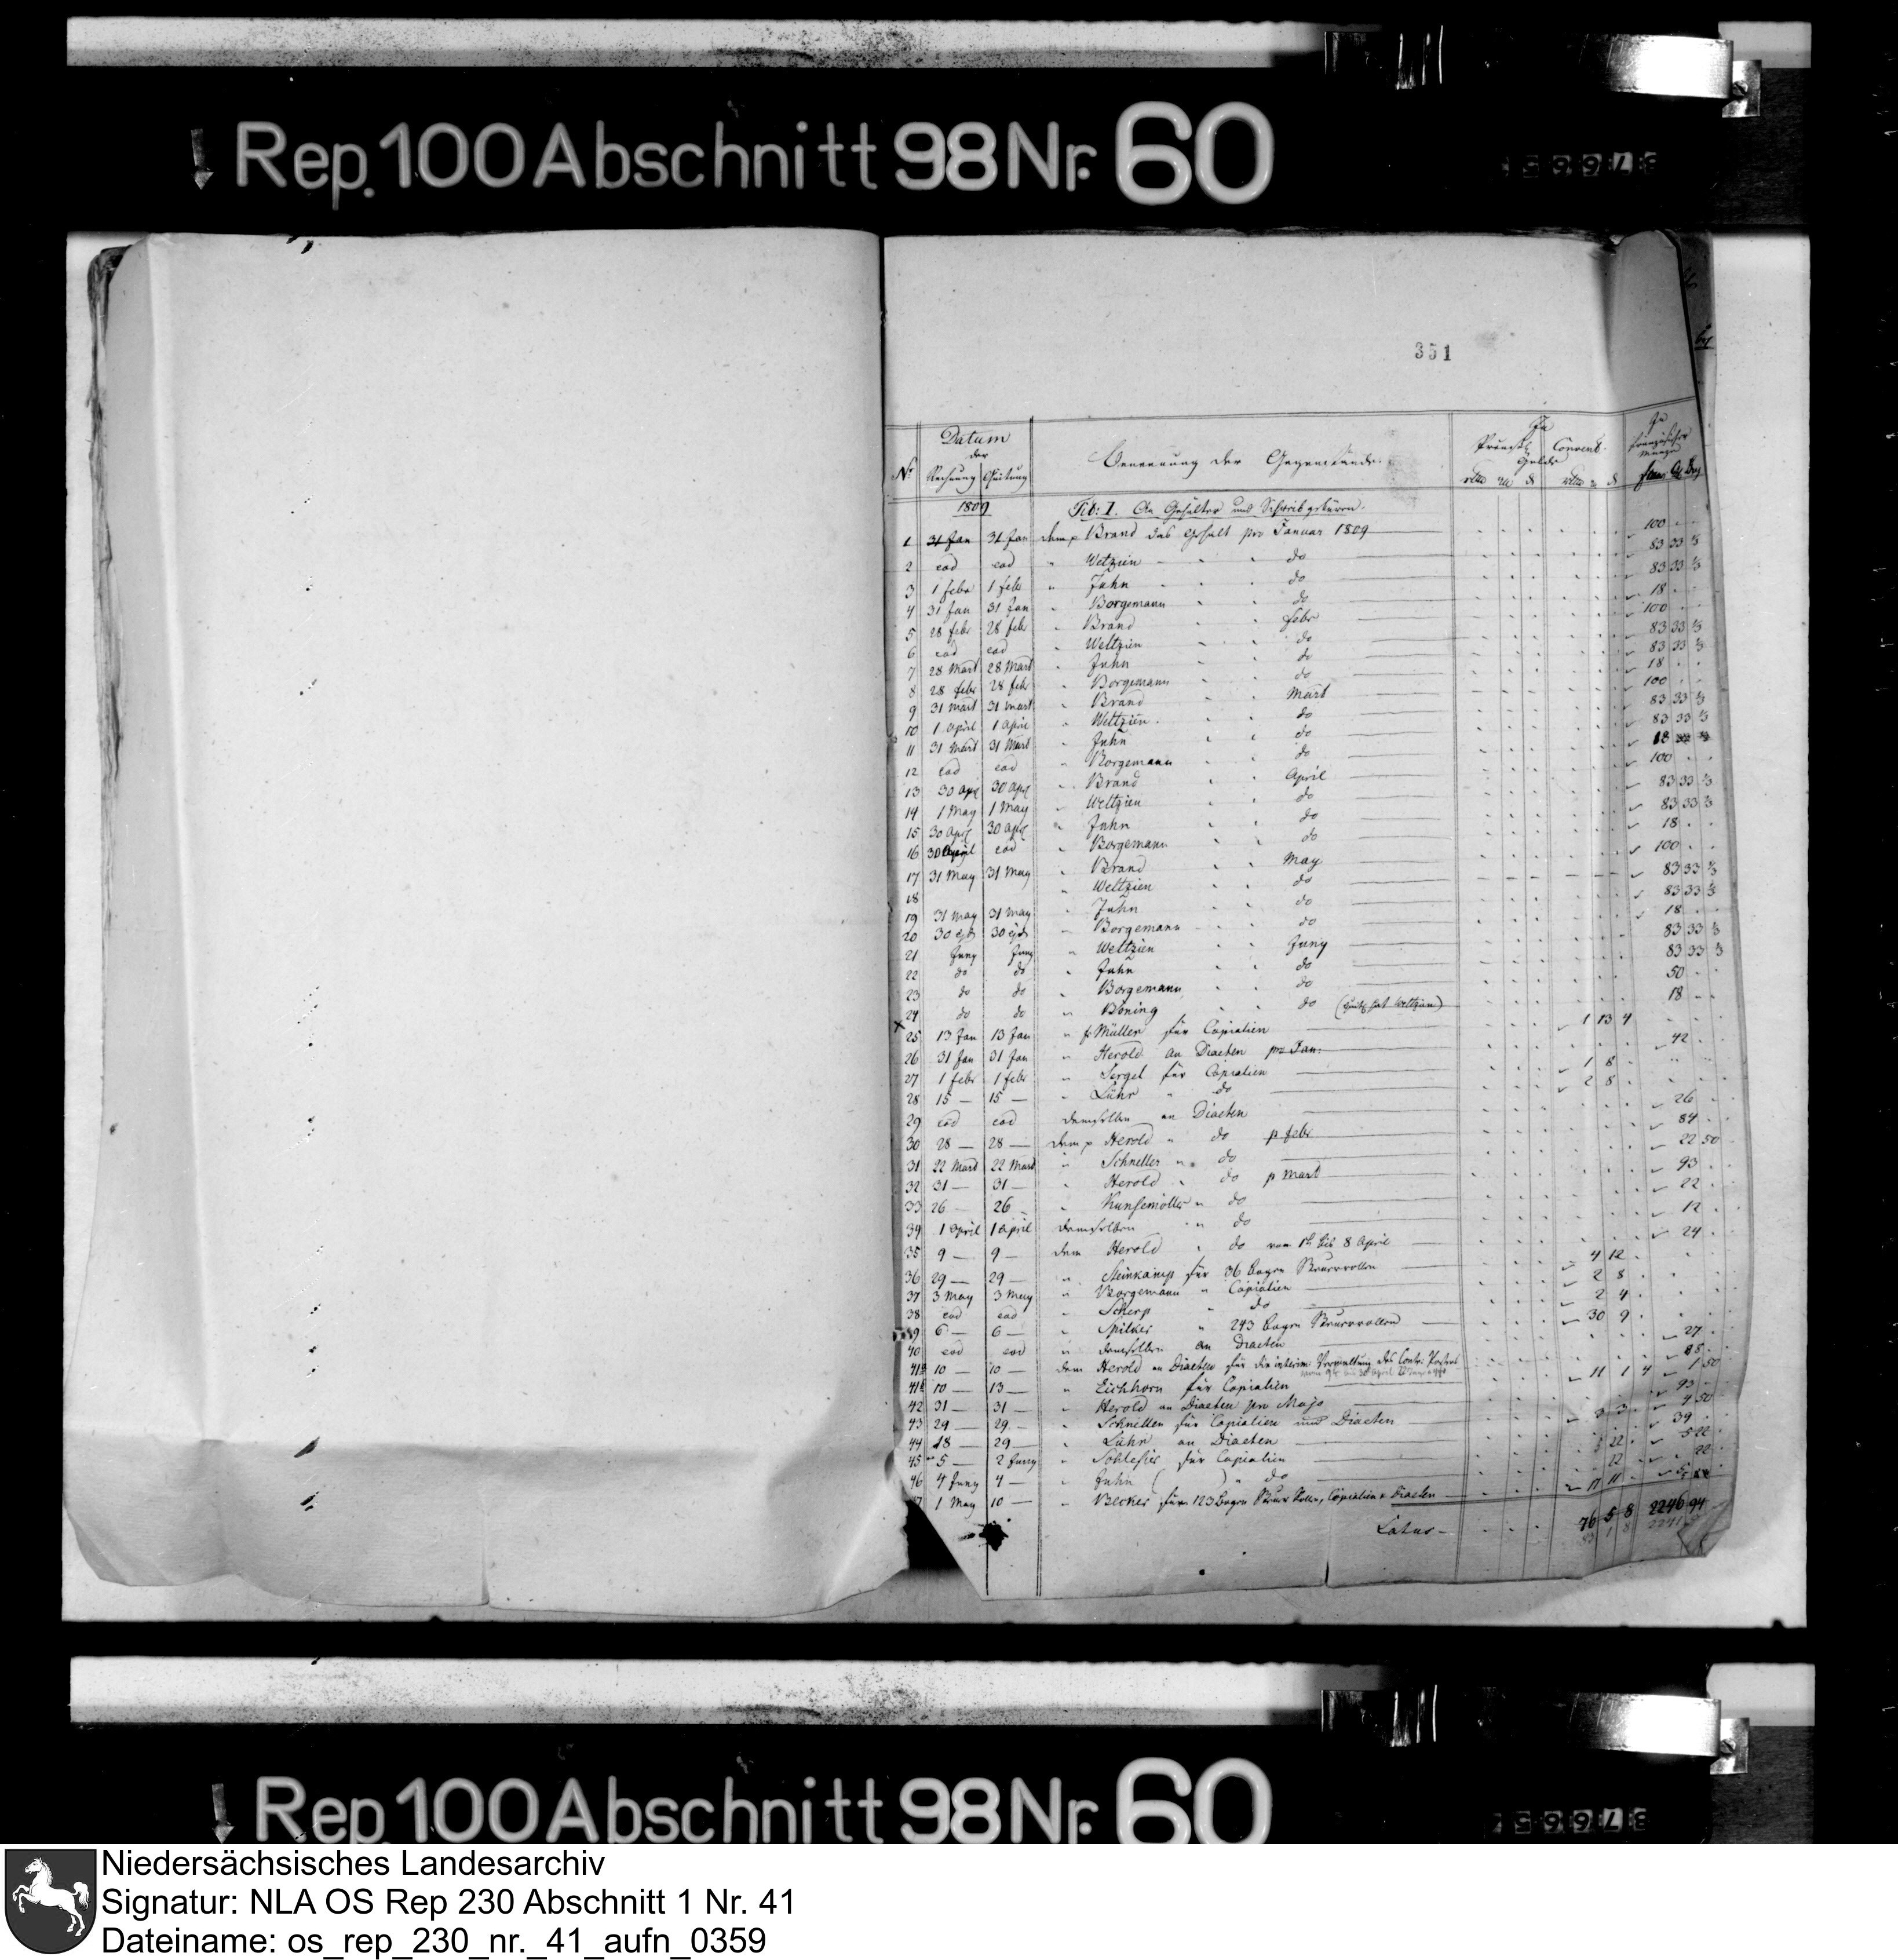 Rep. 100 Abschnitt 98 Nr. 60
37665
351
Datum
der
Nr. Rechnung Quitung Benennung der Gegenstände.
In
Courant Convent.
Gelde
In
französischer
Münze
1809
Tit: I. An Gehälter und Schreibgebüren.
1 31 Jan 31 Jan dem p Brand das Gehalt pro Januar 1809 100
2 eod eod " Weltzien do 83 33 1/3
3 1 febr 1 febr " Juhn do 83 33 1/3
4 31 Jan 31 Jan " Borgemann do 18
5 28 febr 28 febr " Brand febr 100
6 eod eod " Weltzien do 83 33 1/3
7 28 Mart 28 Mart " Juhn do 83 33 1/3
8 28 febr 28 febr " Borgemann do 18
9 31 Mart 31 Mart " Brand Mart 100
10 1 april 1 april " Weltzien do 83 33 1/3
11 31 Mart 31 Mart " Juhn do 83 33 1/3
12 eod eod " Borgemann do 18
13 30 Apr 30 Apr " Brand April 100
14 1 May 1 May " Weltzien do 83 33 1/3
15 30 Apr 30 Apr " Juhn do 83 33 1/3
16 30 April eod " Borgemann do 18
17 31 May 31 May " Brand May 100
18 " Weltzien do 83 33 1/3
19 31 May 31 May " Juhn do 83 33 1/3
20 30 ejd 30 ejd " Borgemann do 18
21 Juny Juny " Weltzien Juny 83 33 1/3
22 do do " Juhn do 83 33 1/3
23 do do " Borgemann do 50
24 do do " Böning do 18
25 13 Jan 13 Jan " Müller für Copialien 1 13 4
26 31 Jan 31 Jan " Herold an Diaeten pro Jan: 42
27 1 febr 1 febr " Sergel für Copialien 1 8
28 15 — 15 — " Lühr " do 2 8
29 eod eod demselben an Diaeten 26
30 28 — 28 — dem p Herold " do p febr 84
31 22 Mart 22 Mart " Schneller " do 22 50
32 31 — 31 — " Herold " do p Mart 93
33 26 — 26 — " Kunsemöller " do 22
34 1 April 1 April demselben " do 12
35 9 — 9 — dem Herold " do vom 1t bis 8 April 24
36 29 — 29 — " Steinkamp für 36 Bogen 4 12
37 3 May 3 May " Borgemann " Copialien 2 8
38 eod eod " Scherp " do 2 4
39 6 — 6 — " Spilker " 243 Bogen 30 9
40 eod eod " demselben an Diaeten 27
41a 10 — 10 — dem Herold an Diaeten für die interim. Verwaltung des 88
41b 10 — 13 — " Eichhorn für Copialien 11 1 4 1 50
42 31 — 31 — " Herold an Diaeten pro Majo 93
43 29 — 29 — " Schneller für Copialien und Diaeten 3 3 4 50
44 18 — 29 — " Lühr an Diaeten 39
45 5 — 2 Juny " Schlesier für Copialien
46 4 Juny 4 — " Juhn " do
47 1 May 10 — " Becker für 123 Bogen Copialien & Diaeten 17 11
Latus — 76 5 8 2246 94
Rep. 100 Abschnitt 98 Nr. 60
37665
Niedersächsisches Landesarchiv
Signatur: NLA OS Rep 230 Abschnitt 1 Nr. 41
Dateiname: os_rep_230_nr._41_aufn_0359